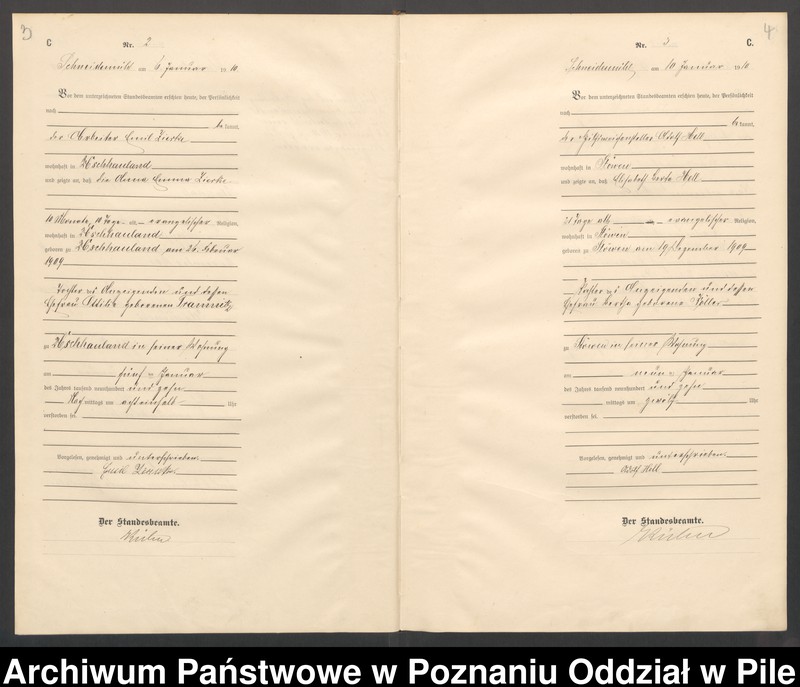 3
C
Nr. 2
Schneidemühl am 6. Januar 1910
Vor dem unterzeichneten Standesbeamten erschien heute, der Persönlichkeit
nach
be kannt,
der Arbeiter Emil Zierke
wohnhaft in Uschhauland
und zeigte an, daß die Anna Emma Zierke
10 Monate, 10 Tage evangelischer Religion,
wohnhaft in Uschhauland
geboren zu Uschhauland am 26. Februar
1909
Tochter des Anzeigenden und dessen
Ehefrau Ottilie geborenen
zu Uschhauland in seiner Wohnung
am fünf Januar
des Jahres tausend neunhundert und zehn
Nach mittags um achteinhalb Uhr
verstorben sei.
Vorgelesen, genehmigt und unterschrieben
Emil Zierke
Der Standesbeamte.
4
Nr. 3
C.
Schneidemühl, am 10 Januar 1910
Vor dem unterzeichneten Standesbeamten erschien heute, der Persönlichkeit
nach
be kannt,
der Hilfsweichensteller Adolf Hell
wohnhaft in Stöwen
und zeigte an, daß Elisabeth Berta Hell
21 Tage alt, evangelischer Religion,
wohnhaft in Stöwen
geboren zu Stöwen am 19 Dezember 1909
Tochter des Anzeigenden und dessen
Ehefrau Bertha geborene
zu Stöwen in seiner Wohnung
am neun Januar
des Jahres tausend neunhundert und zehn
mittags um zwölf Uhr
verstorben sei.
Vorgelesen, genehmigt und unterschrieben
Adolf Hell
Der Standesbeamte.
Archiwum Państwowe w Poznaniu Oddział w Pile